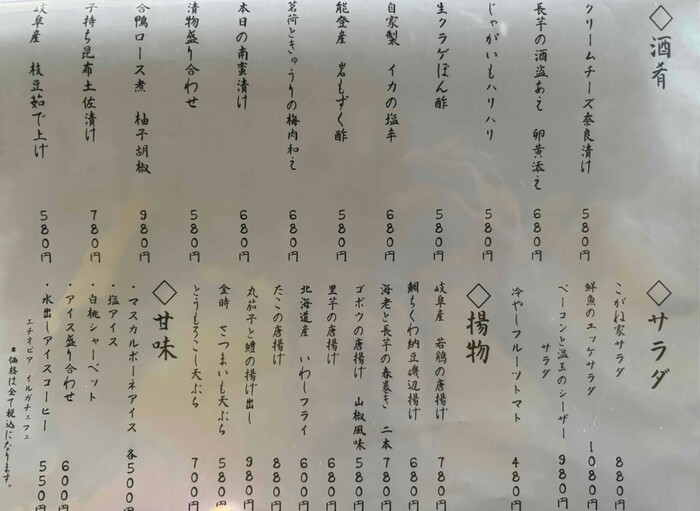 ◇酒肴
クリームチーズ奈良漬け 580円
長芋の酒盗あえ 卵黄添え 680円
じゃがいもハリハリ 580円
生クラゲぽん酢 580円
自家製 イカの塩辛 680円
能登産 岩もずく酢 580円
茗荷ときゅうりの梅肉和え 680円
本日の南蛮漬け 680円
漬物盛り合わせ 580円
合鴨ロース煮 柚子胡椒 980円
子持ち昆布土佐漬け 780円
岐阜産 枝豆茹で上げ 580円
◇サラダ
こがね家サラダ 880円
鮮魚のユッケサラダ 1080円
ベーコンと温玉のシーザーサラダ 980円
冷やしフルーツトマト 480円
◇揚物
岐阜産 若鶏の唐揚げ 780円
鯛ちくわ納豆磯辺揚げ 680円
海老と長芋の春巻き 二本 780円
ゴボウの唐揚げ 山椒風味 580円
里芋の唐揚げ 680円
北海道産 いわしフライ 600円
たこの唐揚げ 880円
丸茄子と鱧の揚げ出し 980円
金時 さつまいも天ぷら 580円
とうもろこし天ぷら 700円
◇甘味
・マスカルポーネアイス 各500円
・塩アイス
・白桃シャーベット
・アイス盛り合わせ 600円
・水出しアイスコーヒー 550円
エチオピア イルガチェフェ
*価格は全て税込になります。